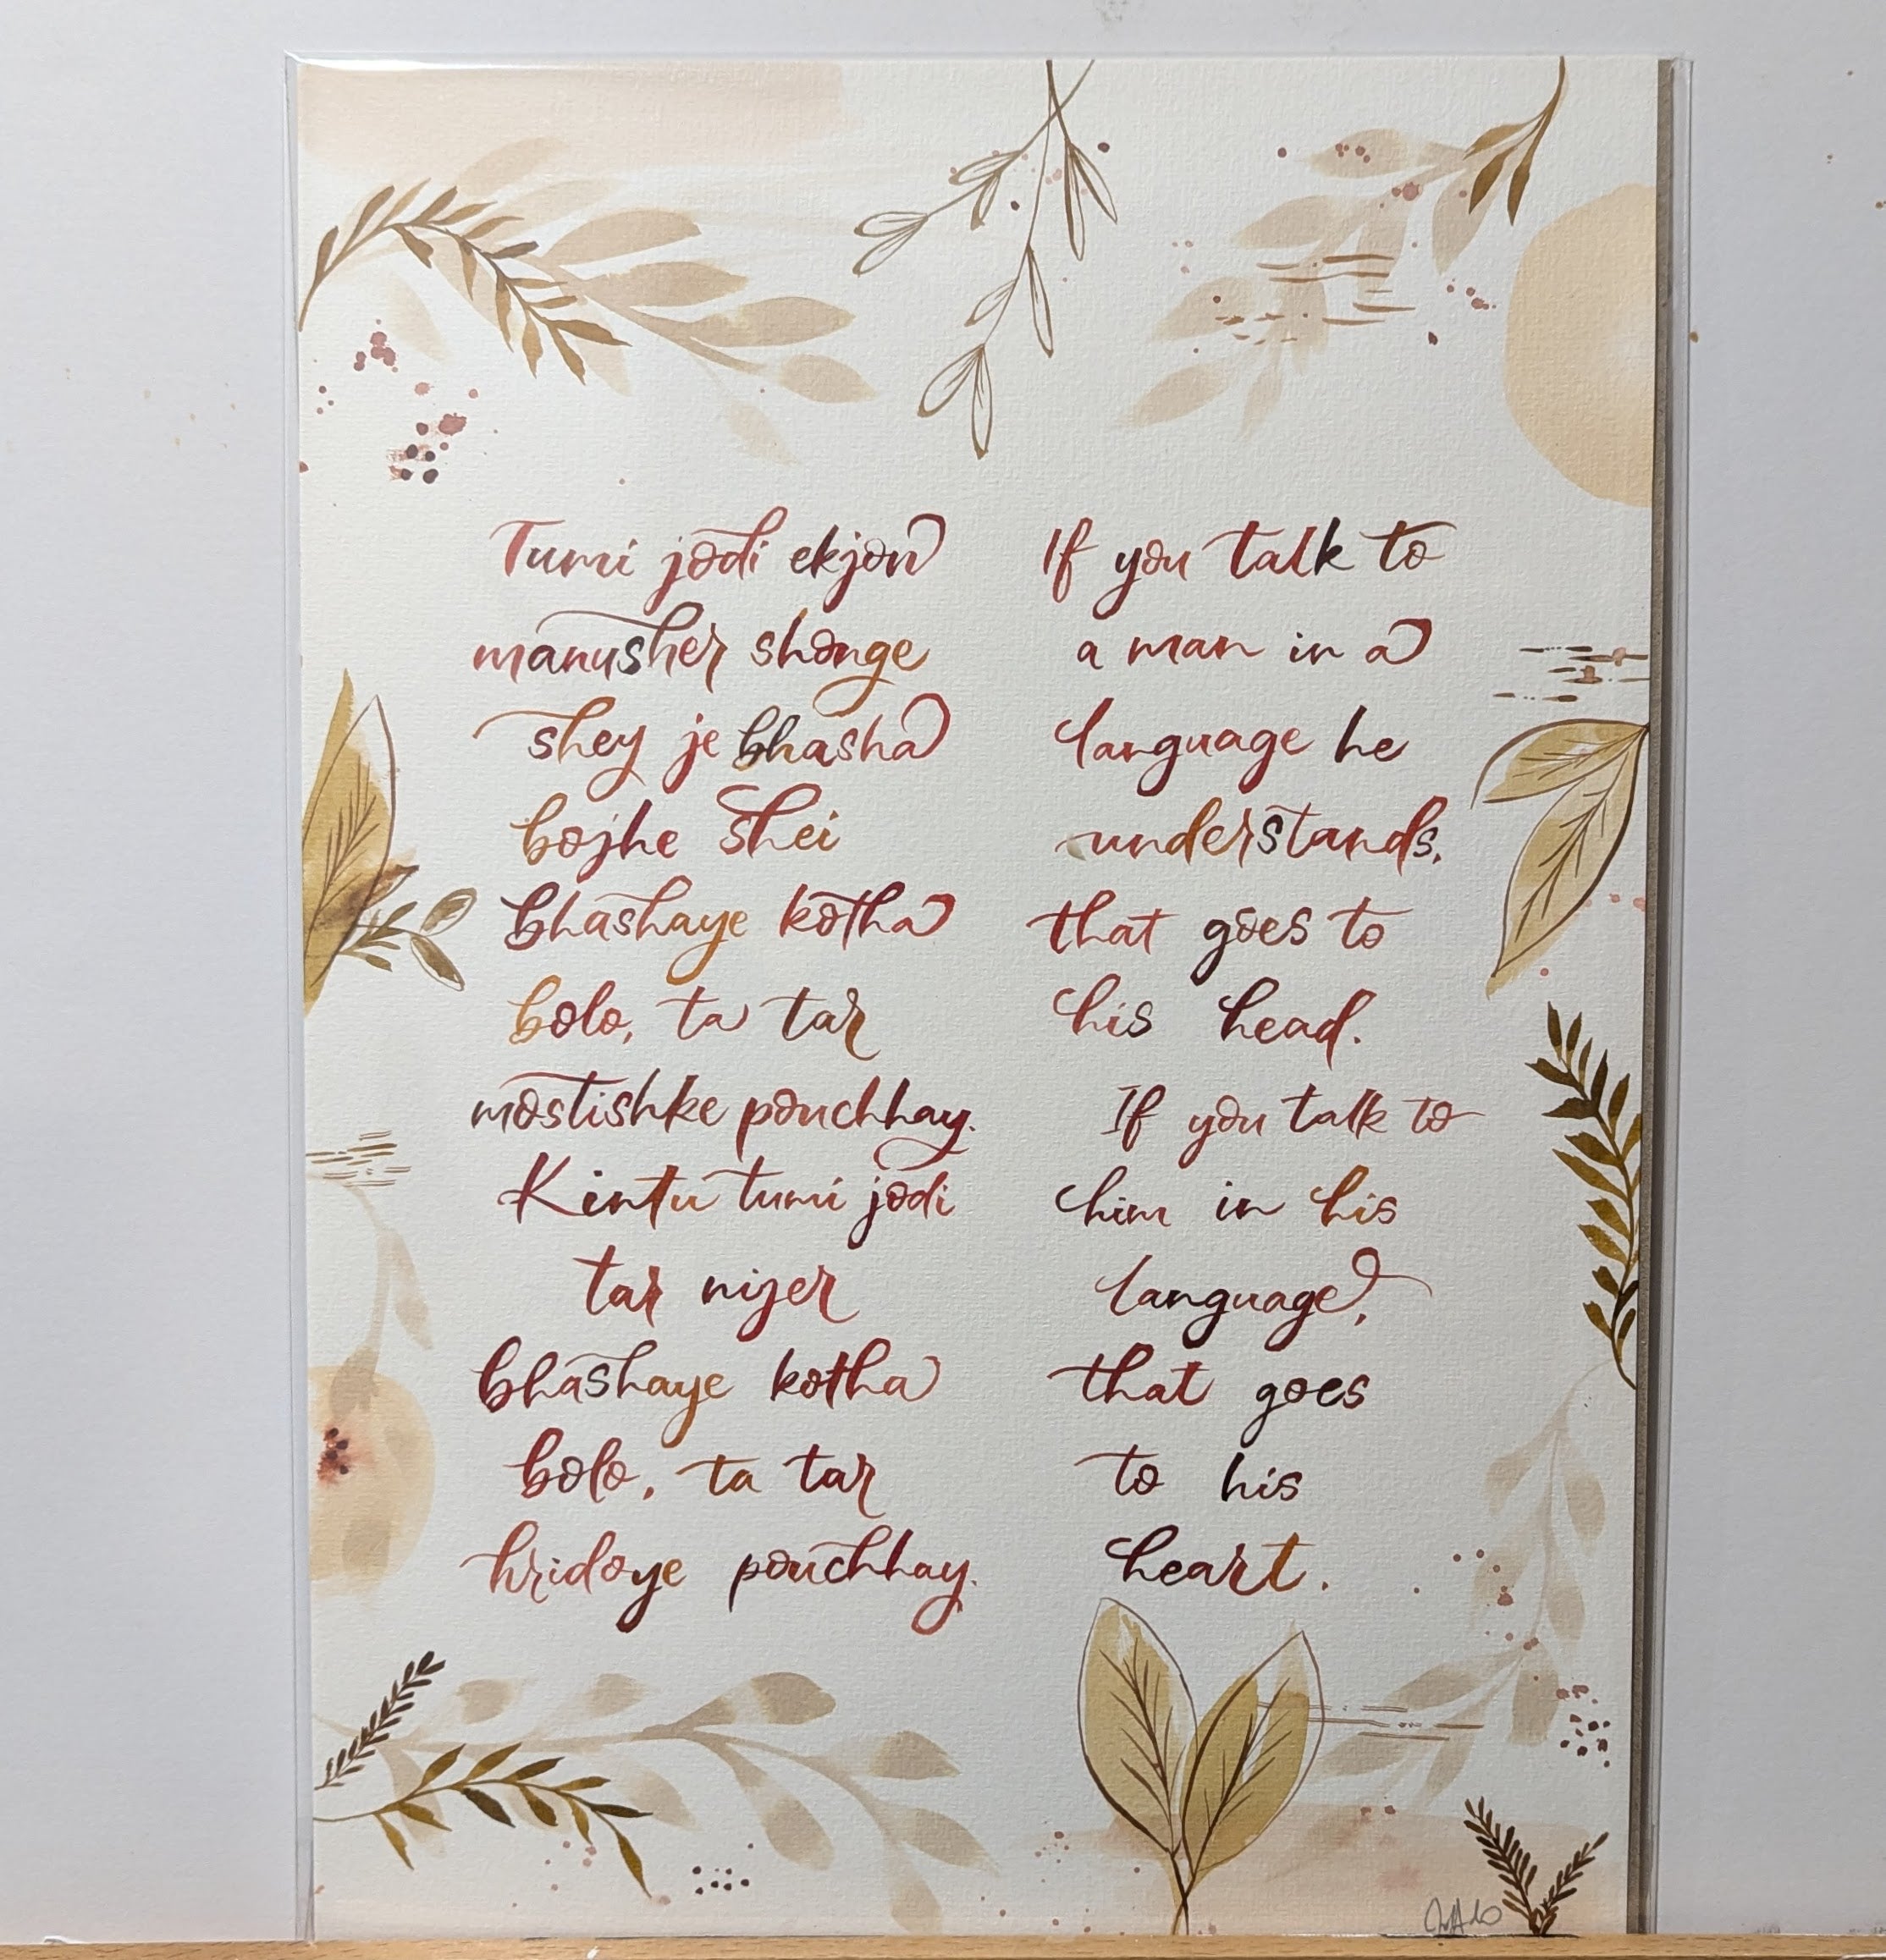 Tumi jodi ekjon
manusher shonge
shey je bhasha
bojhe shei
bhashaye kotha
bolo, ta tar
mostishke pouchhay.
Kintu tumi jodi
tar nijer
bhashaye kotha
bolo, ta tar
hridoye pouchhay.
If you talk to
a man in a
language he
understands,
that goes to
his head.
If you talk to
him in his
language,
that goes
to his
heart.